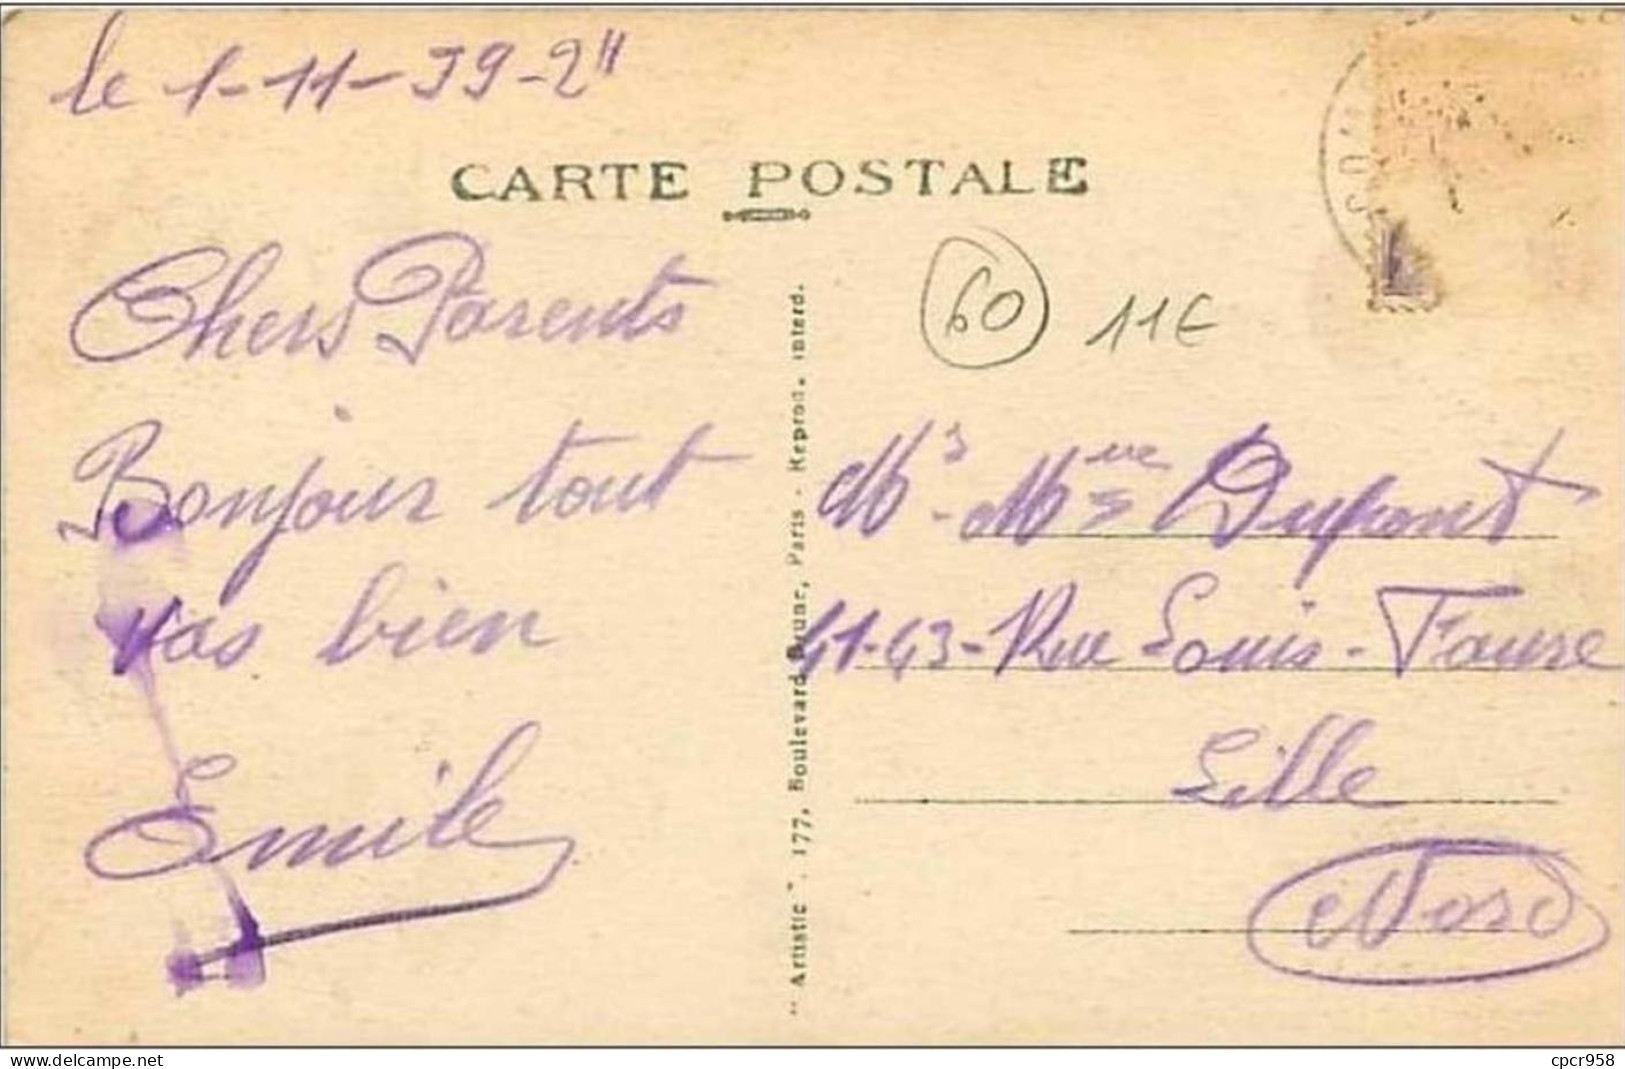 le 1-11-39-2H
CARTE POSTALE
Chers Parents
Bonjour tout
vas bien
Emile
60 11€
Mr - Mme Dupont
41-43-Rue Louis-Faure
Lille
Nord
"Artistic", 177, Boulevard Brune, Paris - Reprod. interd.
cpcr958